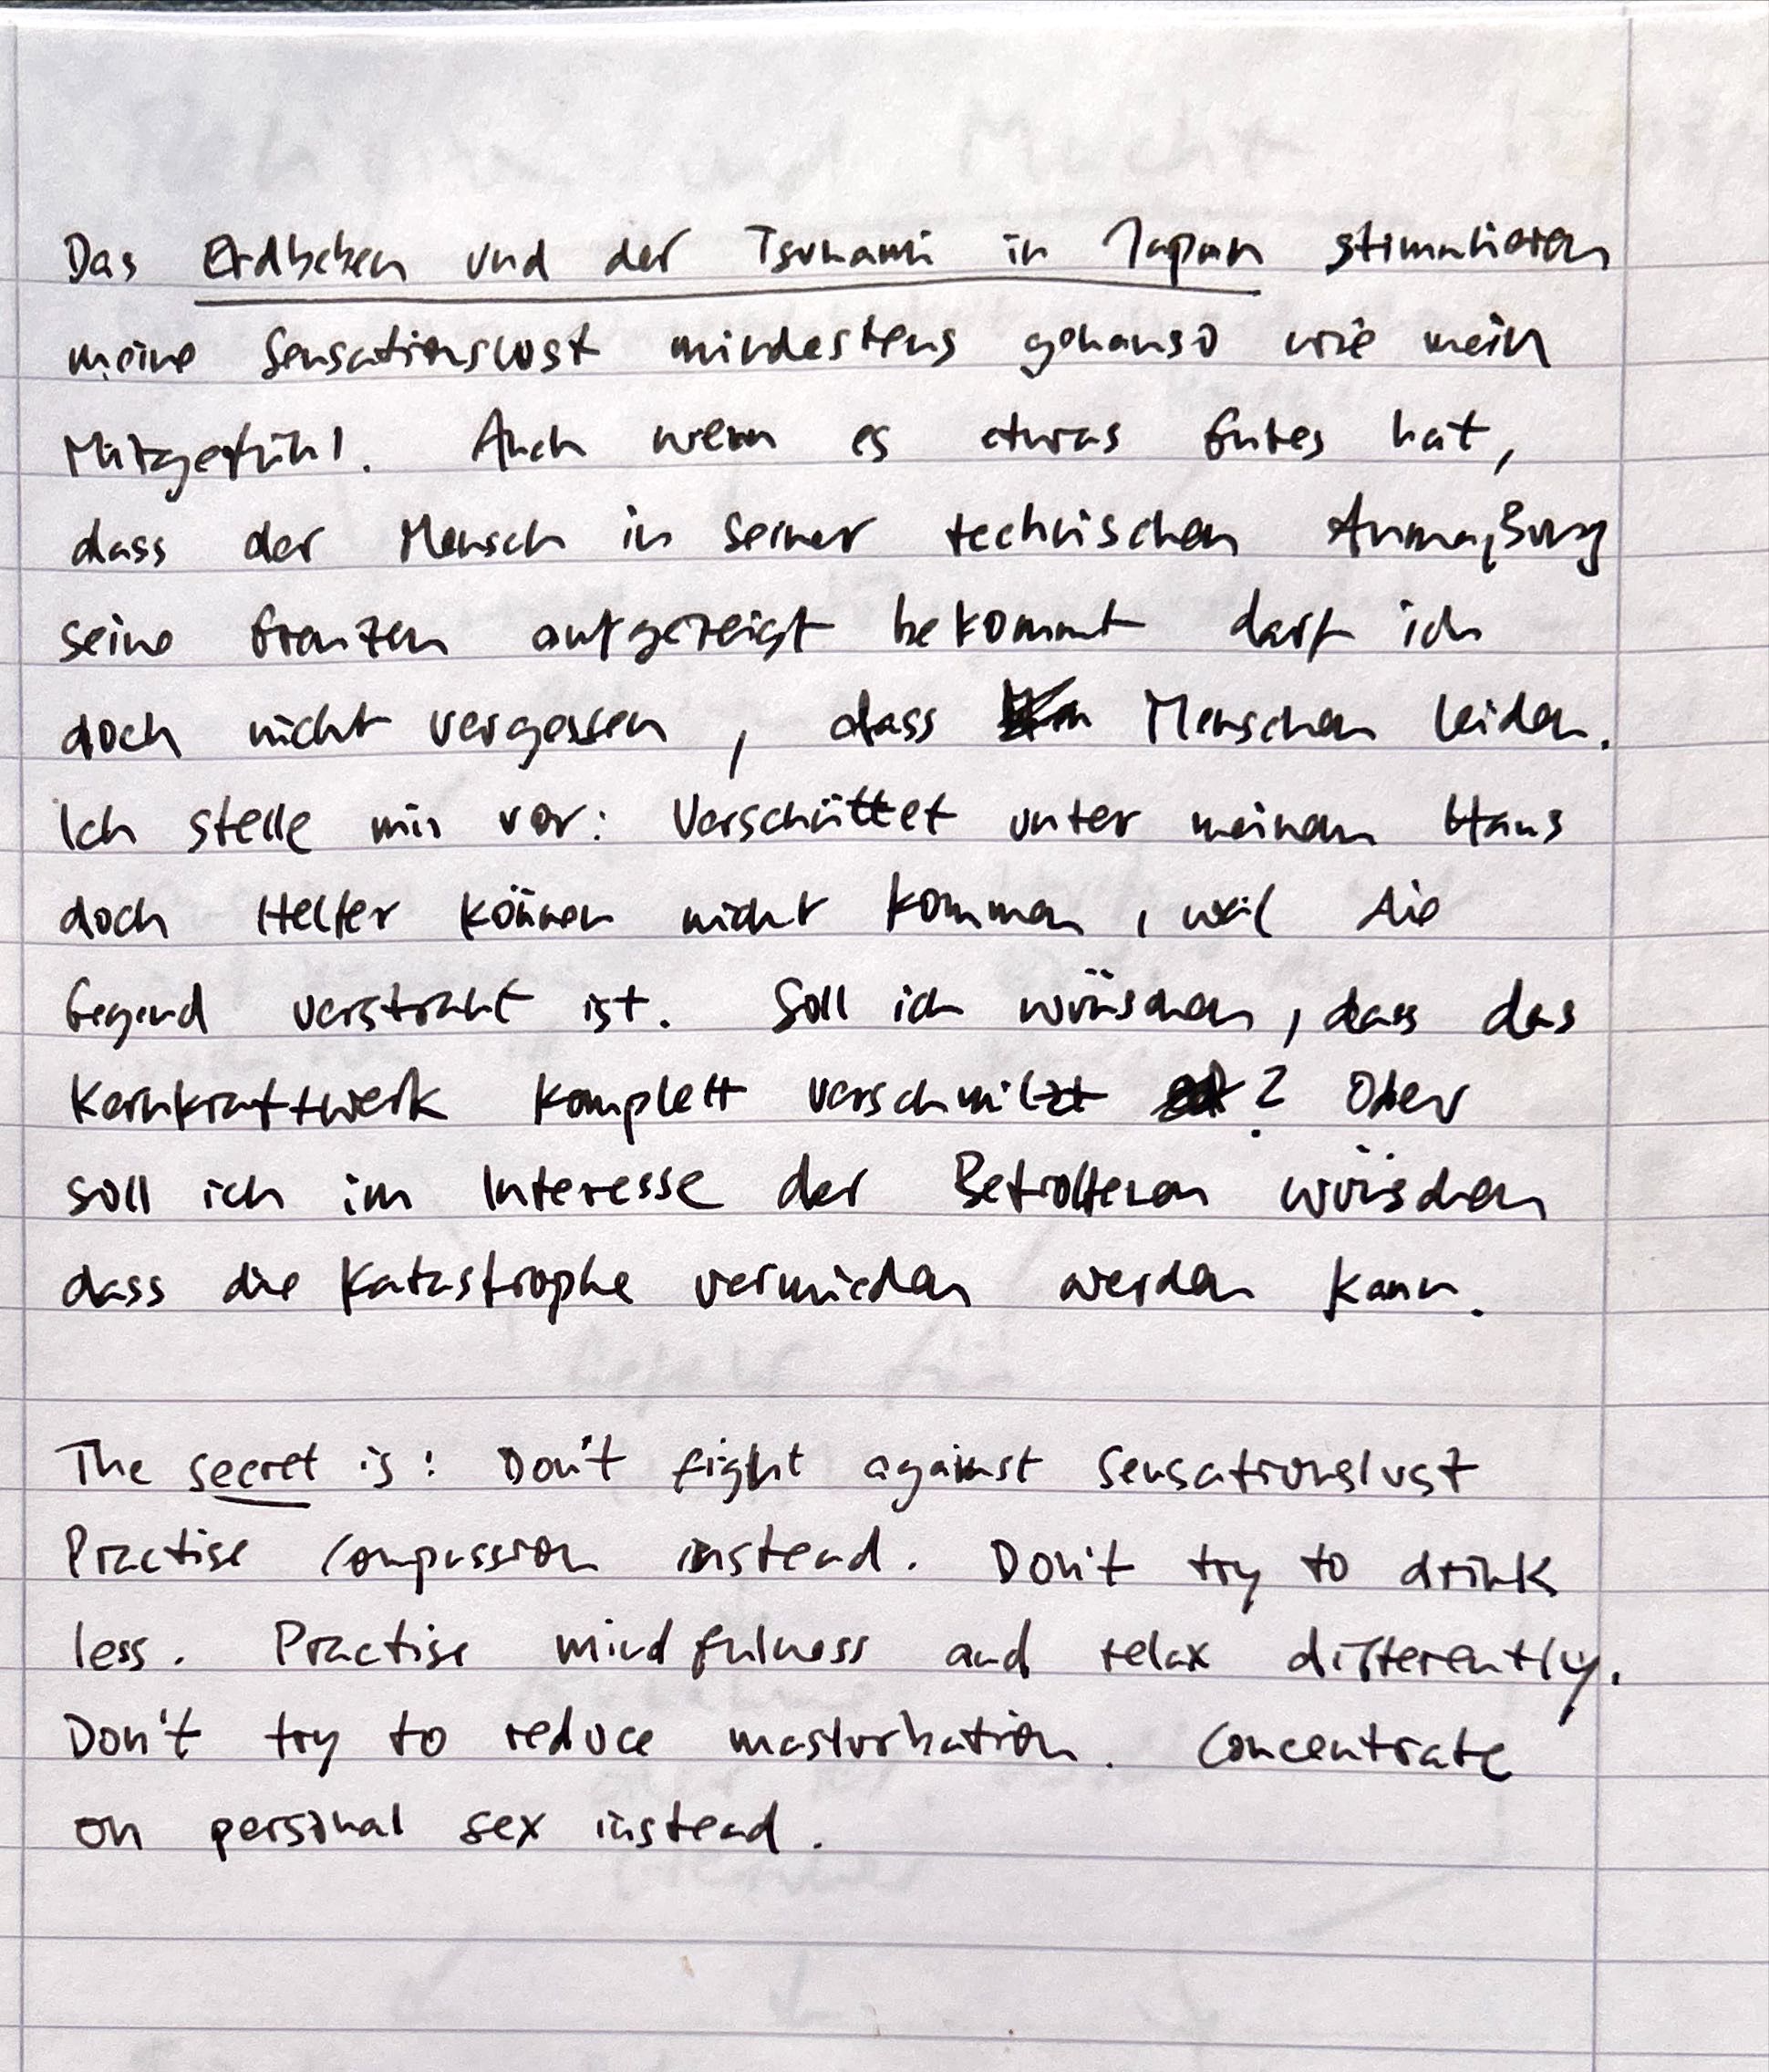 Das Erdbeben und der Tsunami in Japan stimulieren
meine Sensationslust mindestens genauso wie mein
Mitgefühl. Auch wenn es etwas Gutes hat,
dass der Mensch in seiner technischen Anmaßung
seine Grenzen aufgezeigt bekommt darf ich
doch nicht vergessen, dass Menschen leiden.
Ich stelle mir vor: Verschüttet unter meinem Haus
doch Helfer können nicht kommen, weil die
Gegend verstrahlt ist. Soll ich wünschen, dass das
Kernkraftwerk komplett verschmilzt ? Oder
soll ich im Interesse der Betroffenen wünschen
dass die Katastrophe vermieden werden kann.
The secret is: Don't fight against Sensationslust
Practise compassion instead. Don't try to drink
less. Practise mindfulness and relax differently.
Don't try to reduce masturbation. Concentrate
on personal sex instead.